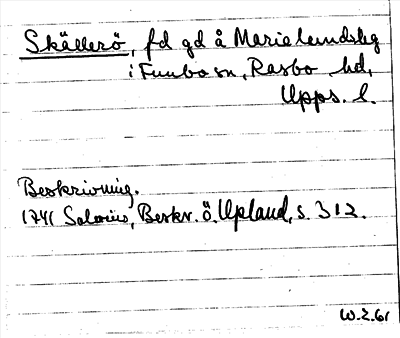 Skällerö, fd gd å Marielundslbg
i Funbo sn, Rasbo hd,
Upps. l.
Beskrivning.
1741 Salvius, Beskr. ö. Upland, s. 312.
W.Z.61